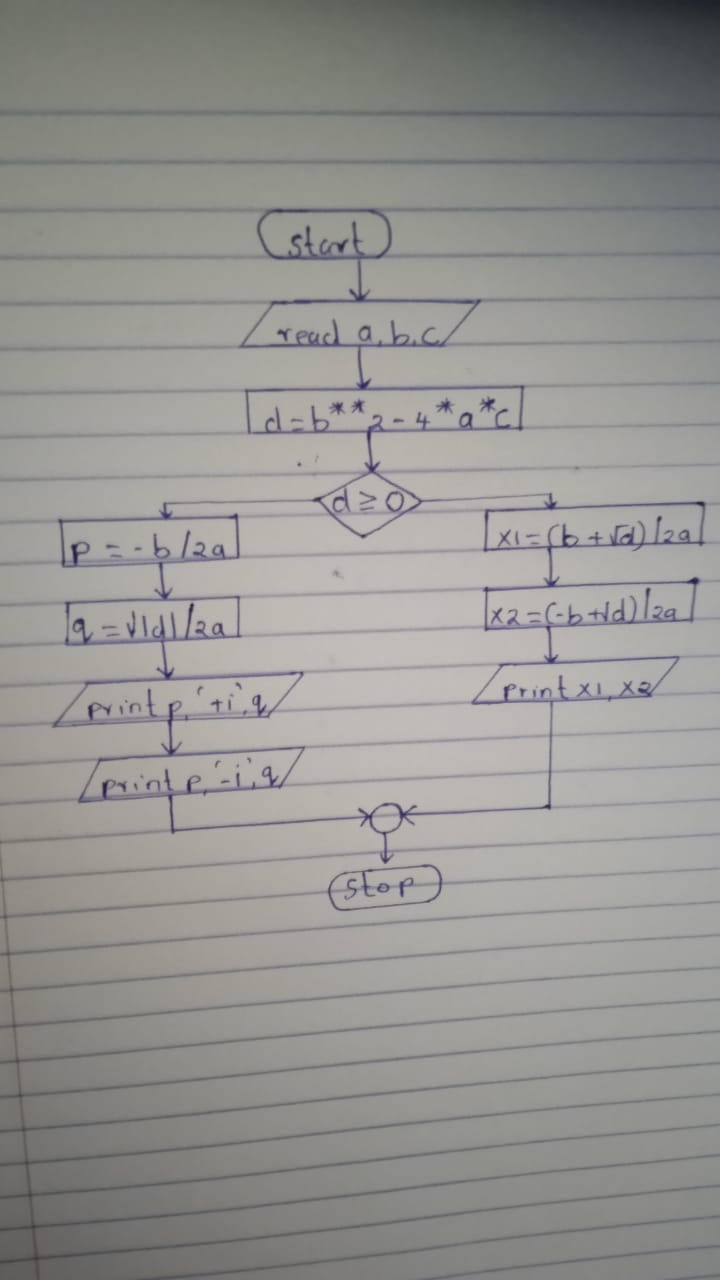 start
read a,b,c
d=b**2-4*a*c
d≥0
p=-b/2a
q=√|d|/2a
print p,'+i',q
print p,'-i',q
x1=(b+√d)/2a
x2=(-b+√d)/2a
print x1,x2
stop